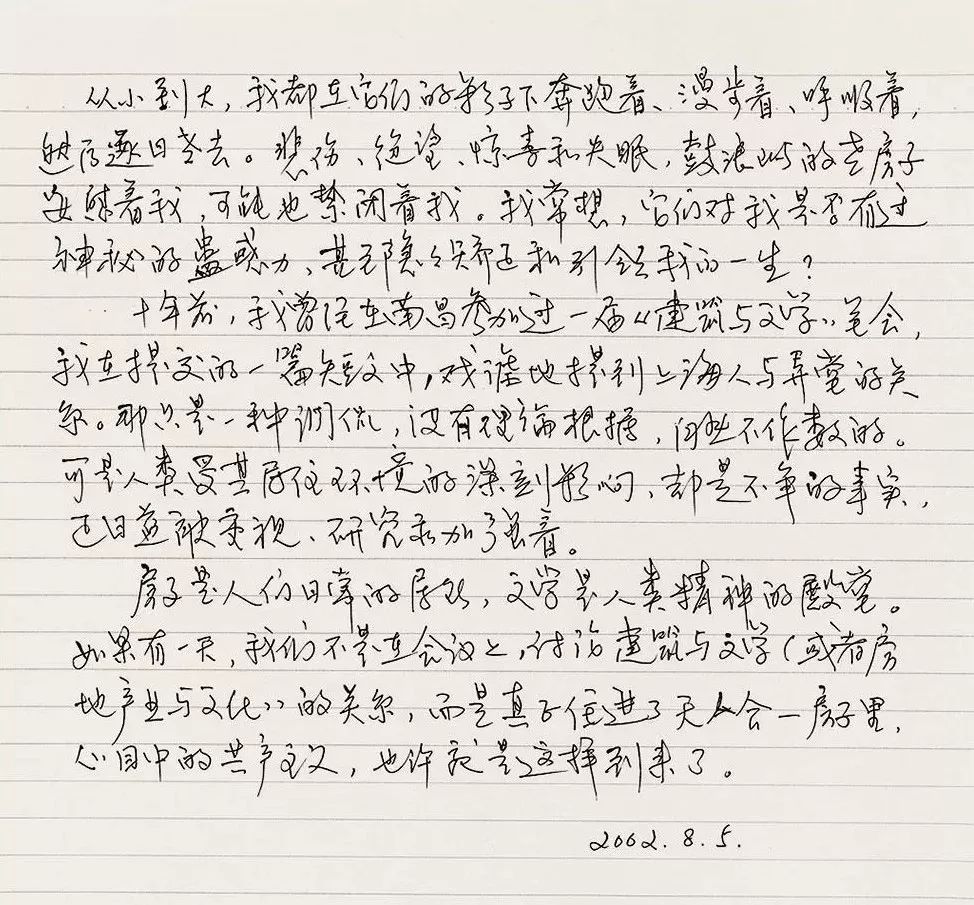 从小到大，我都在它们的影子下奔跑着、漫步着、呼吸着，
然后逐日老去。悲伤、绝望、惊喜和失眠，鼓浪屿的老房子
安慰着我，可能也禁闭着我。我常想，它们对我是否有过
神秘的蛊惑力、甚至隐隐矫正和引领我的一生？
十年前，我曾经在南昌参加过一届《建筑与文学》笔会，
我在提交的一篇短文中，戏谑地提到上海人与弄堂的关
系。那只是一种调侃，没有理论根据，自然不作数的。
可是人类受其居住环境的深刻影响、却是不争的事实，
正日益被重视、研究和加强着。
房子是人们日常的居所，文学是人类精神的殿堂。
如果有一天，我们不是在会议上，讨论建筑与文学（或者房
地产业与文化）的关系，而是真子住进了天人合一房子里，
心目中的共产主义，也许就是这样到来了。
2002.8.5.